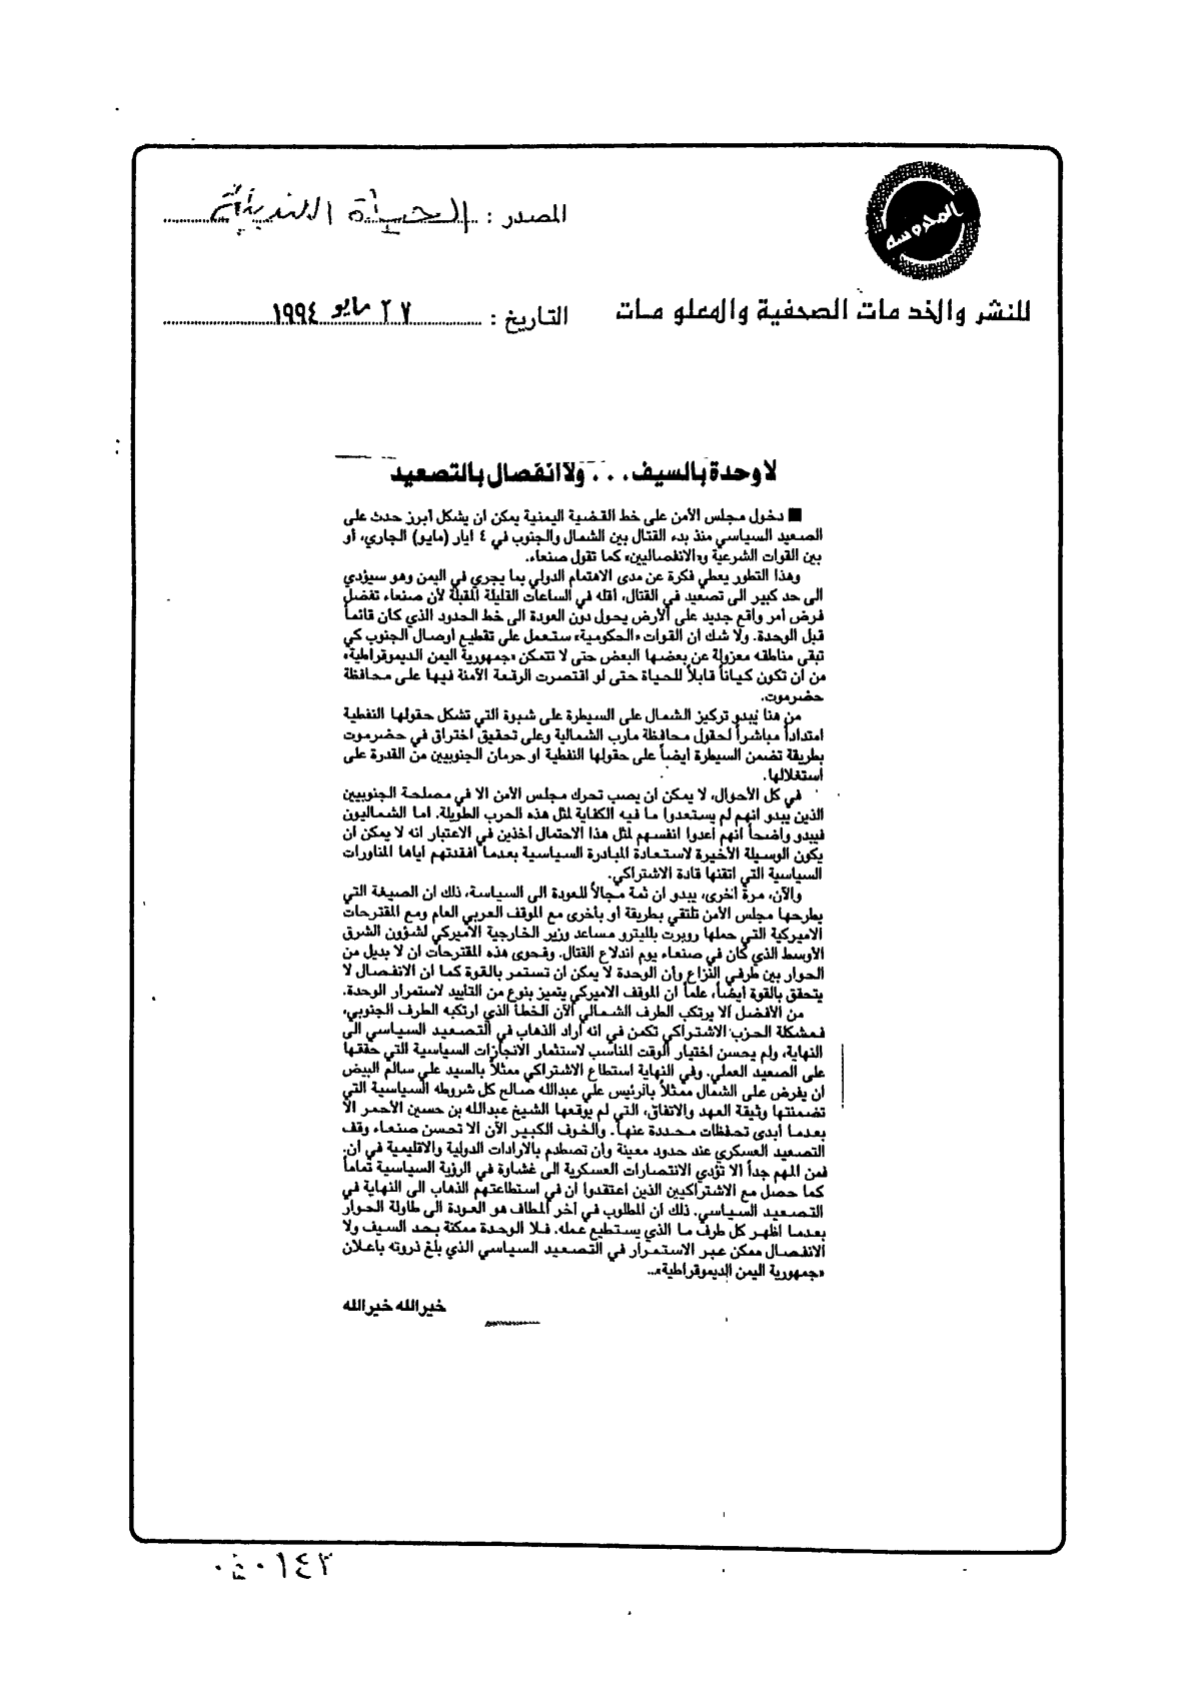 المحروسه
المصدر : الحياة اللندنية
للنشر والخدمات الصحفية والمعلومات
التاريخ : ٢٧ مايو ١٩٩٤
لا وحدة بالسيف... ولا انفصال بالتصعيد
■ دخول مجلس الأمن على خط القضية اليمنية يمكن ان يشكل أبرز حدث على
الصعيد السياسي منذ بدء القتال بين الشمال والجنوب في ٤ ايار (مايو) الجاري، أو
بين القوات الشرعية و«الانفصاليين» كما تقول صنعاء.
وهذا التطور يعطي فكرة عن مدى الاهتمام الدولي بما يجري في اليمن وهو سيؤدي
الى حد كبير الى تصعيد في القتال، اقله في الساعات القليلة المقبلة لأن صنعاء تفضل
فرض أمر واقع جديد على الأرض يحول دون العودة الى خط الحدود الذي كان قائماً
قبل الوحدة. ولا شك ان القوات «الحكومية» ستعمل على تقطيع اوصال الجنوب كي
تبقى مناطقه معزولة عن بعضها البعض حتى لا تتمكن «جمهورية اليمن الديموقراطية»
من ان تكون كياناً قابلاً للحياة حتى لو اقتصرت الرقعة الآمنة فيها على محافظة
حضرموت.
من هنا يبدو تركيز الشمال على السيطرة على شبوة التي تشكل حقولها النفطية
امتداداً مباشراً لحقول محافظة مارب الشمالية وعلى تحقيق اختراق في حضرموت
بطريقة تضمن السيطرة ايضاً على حقولها النفطية او حرمان الجنوبيين من القدرة على
استغلالها.
في كل الأحوال، لا يمكن ان يصب تحرك مجلس الأمن الا في مصلحة الجنوبيين
الذين يبدو انهم لم يستعدوا ما فيه الكفاية لمثل هذه الحرب الطويلة. اما الشماليون
فيبدو واضحاً انهم اعدوا انفسهم لمثل هذا الاحتمال آخذين في الاعتبار انه لا يمكن ان
يكون الوسيلة الأخيرة لاستعادة المبادرة السياسية بعدما افقدتهم اياها المناورات
السياسية التي اتقنها قادة الاشتراكي.
والآن، مرة أخرى، يبدو ان ثمة مجالاً للعودة الى السياسة، ذلك ان الصيغة التي
يطرحها مجلس الأمن تلتقي بطريقة أو بأخرى مع الموقف العربي العام ومع المقترحات
الاميركية التي حملها روبرت بلليترو مساعد وزير الخارجية الأميركي لشؤون الشرق
الأوسط الذي كان في صنعاء يوم اندلاع القتال. وفحوى هذه المقترحات ان لا بديل من
الحوار بين طرفي النزاع وأن الوحدة لا يمكن ان تستمر بالقوة كما ان الانفصال لا
يتحقق بالقوة ايضاً، علماً ان الموقف الاميركي يتميز بنوع من التأييد لاستمرار الوحدة.
من الأفضل ألا يرتكب الطرف الشمالي الآن الخطأ الذي ارتكبه الطرف الجنوبي،
فمشكلة الحزب الاشتراكي تكمن في انه أراد الذهاب في التصعيد السياسي الى
النهاية، ولم يحسن اختيار الوقت المناسب لاستثمار الانجازات السياسية التي حققها
على الصعيد العملي. وفي النهاية استطاع الاشتراكي ممثلاً بالسيد علي سالم البيض
ان يفرض على الشمال ممثلاً بالرئيس علي عبدالله صالح كل شروطه السياسية التي
تضمنتها وثيقة العهد والاتفاق، التي لم يوقعها الشيخ عبدالله بن حسين الأحمر الا
بعدما أبدى تحفظات محددة عنها. والخوف الكبير الآن الا تحسن صنعاء وقف
التصعيد العسكري عند حدود معينة وأن تصطدم بالارادات الدولية والاقليمية في آن.
فمن المهم جداً ألا تؤدي الانتصارات العسكرية الى غشاوة في الرؤية السياسية تماماً
كما حصل مع الاشتراكيين الذين اعتقدوا ان في استطاعتهم الذهاب الى النهاية في
التصعيد السياسي. ذلك ان المطلوب في آخر المطاف هو العودة الى طاولة الحوار
بعدما اظهر كل طرف ما الذي يستطيع عمله. فلا الوحدة ممكنة بحد السيف ولا
الانفصال ممكن عبر الاستمرار في التصعيد السياسي الذي بلغ ذروته بإعلان
«جمهورية اليمن الديموقراطية»..
خيرالله خيرالله